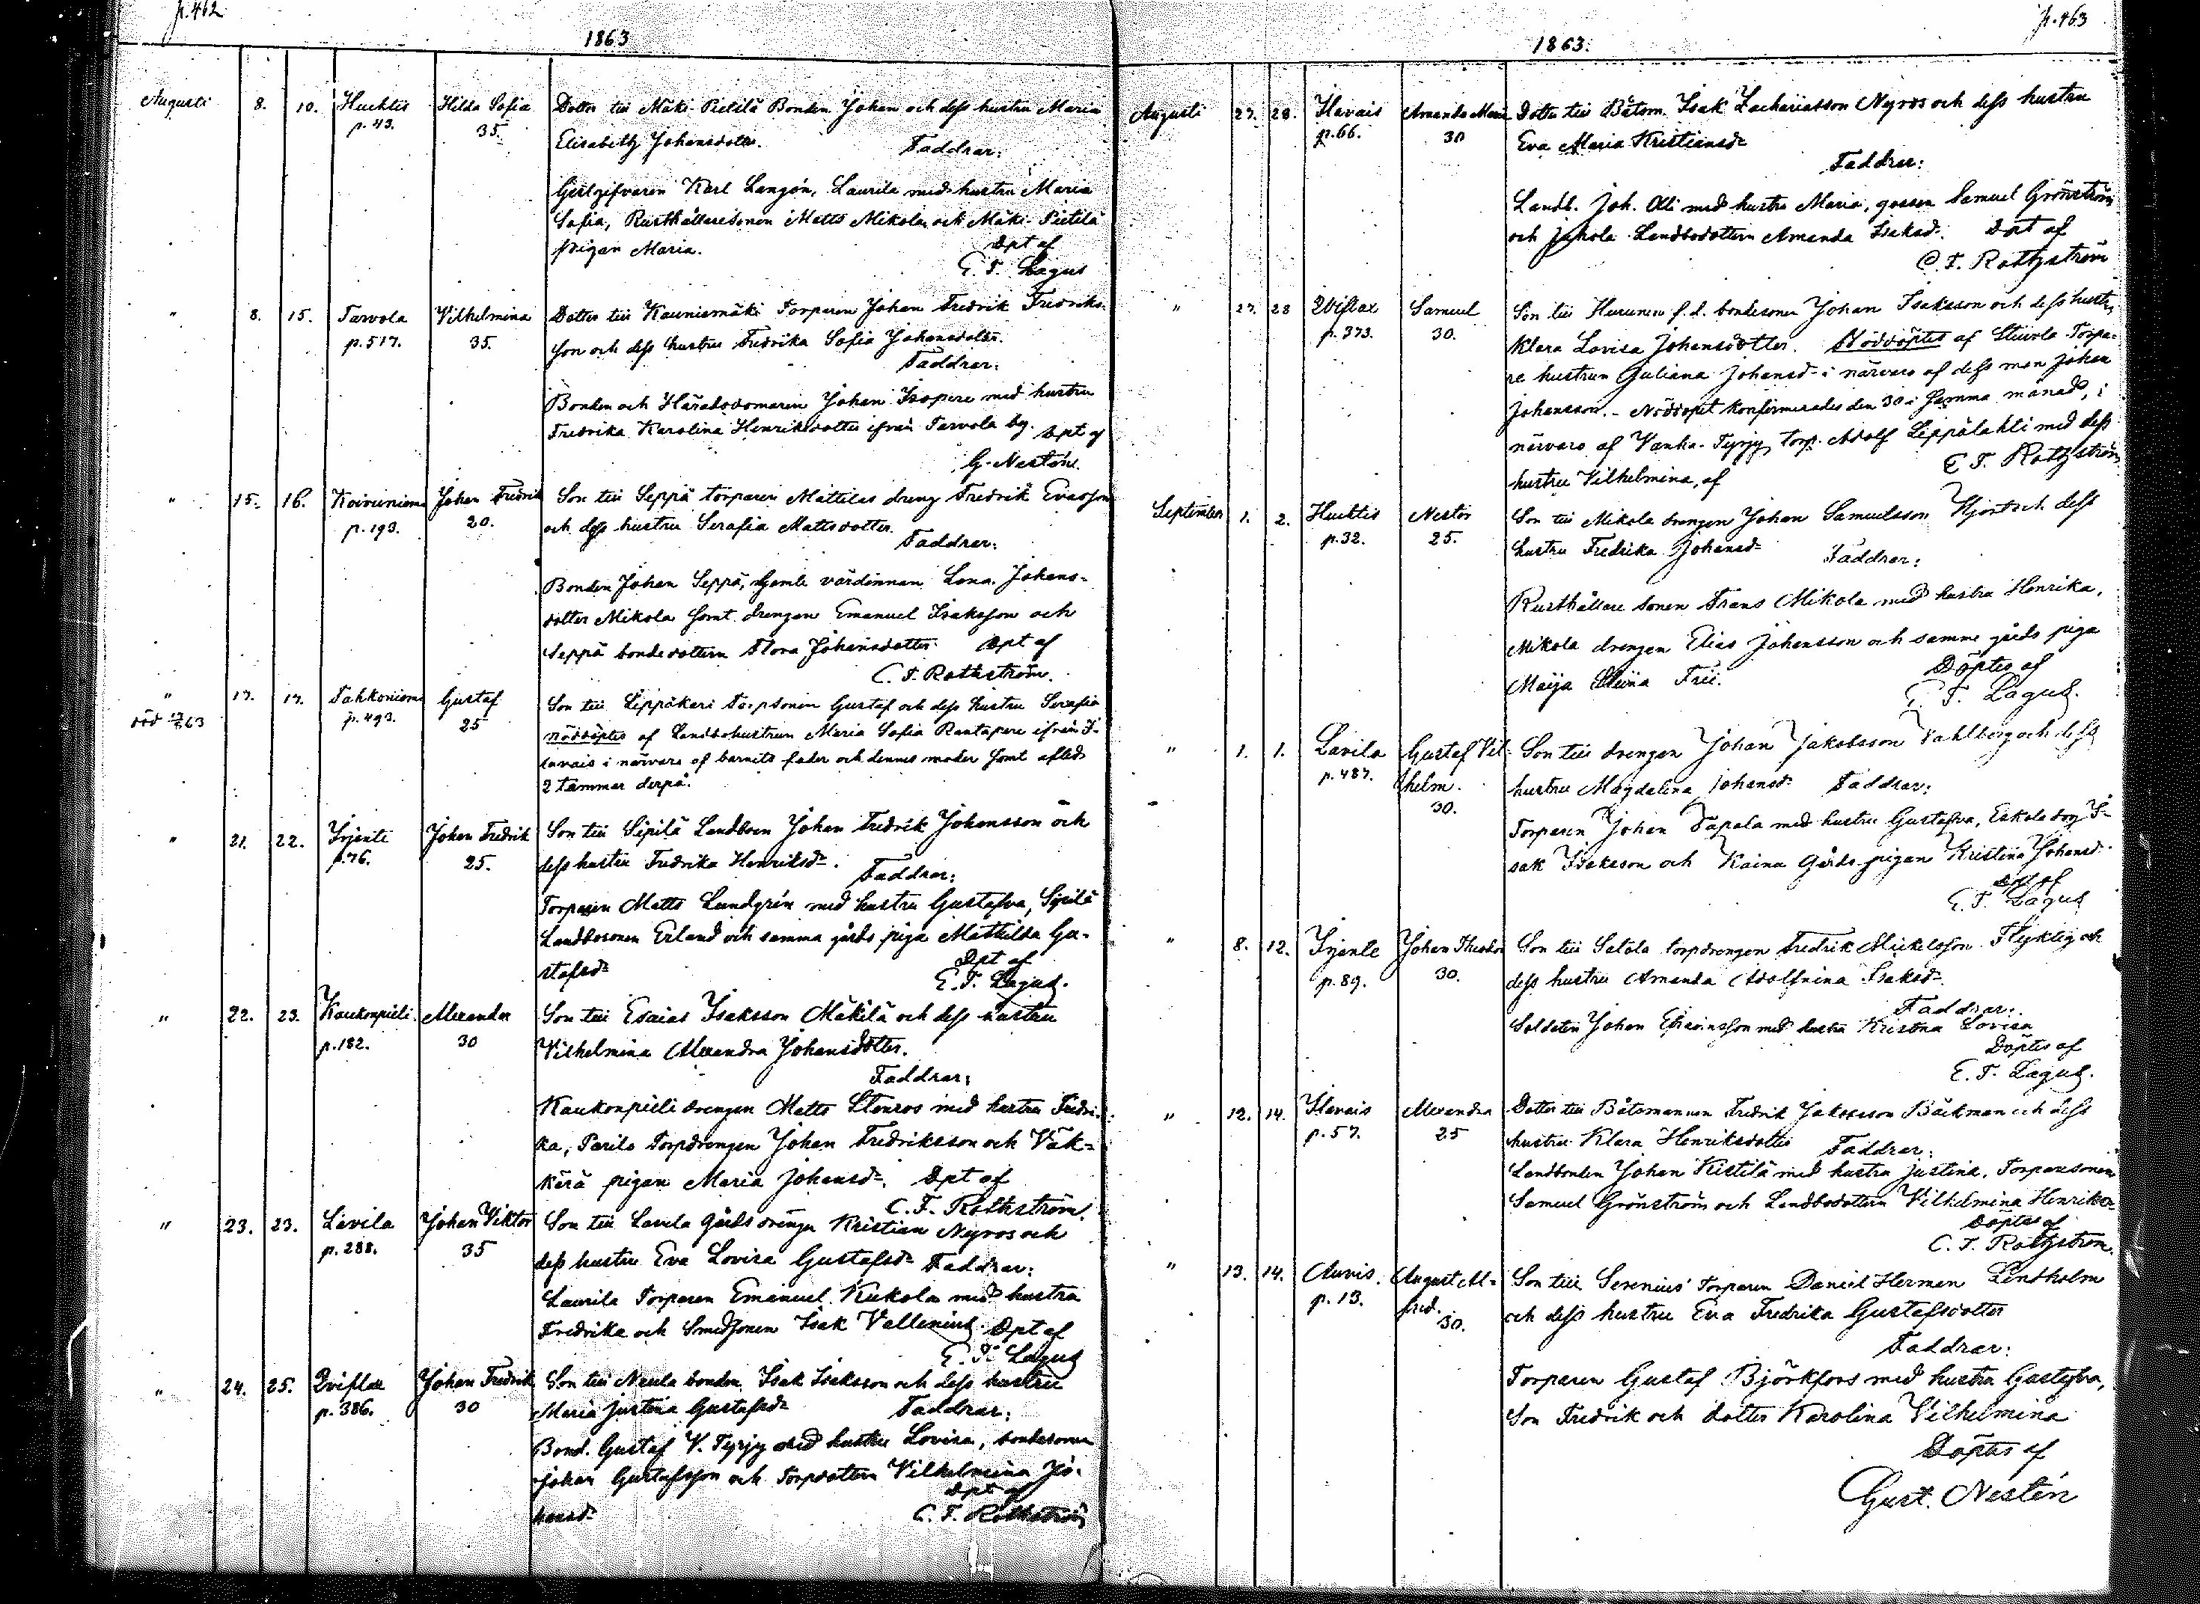 p.462
1863
Augusti 8. 10. Huchtis Hilda Sofia Dotter till Mäki-Pietilä Bonden Johan och dess hustru Maria
p. 43. 35 Elisabeth Johansdotter. Faddrar:
Karl Langén, Laurila med hustru Maria
Sofia, Rusthållaresonen Matts Mikola och Mäki-Pietilä
pigan Maria. Dpt af
E. F. Lagus
" 8. 15. Tarvola Vilhelmina Dotter till Kauniomäki Torparen Johan Fredrik Fredriks-
p. 517. 35. son och dess hustru Fredrika Sofia Johansdotter.
Faddrar:
Bonden och Häradsdomaren Johan Isopere med hustru
Fredrika Karolina Henriksdotter ifrån Tarvola by. Dpt af
G. Nestén.
" 15. 16. Koivuniemi Johan Fredrik Son till Seppä torparen Mattilas dreng Fredrik Evasson
p. 193. 20. och dess hustru Serafia Mattsdotter.
Faddrar:
Bonden Johan Seppä, Gamla värdinnan Lena Johans-
dotter Mikola samt drengen Emanuel Isaksson och
Seppä bondedottern Flora Johansdotter. Dpt af
C. F. Rothström.
" 17. 17. Tahkoniemi Gustaf Son till Leppäkari Torpsonen Gustaf och dess hustru Serafia
död 63 p. 493. 25 nöddöptes af Landbohustrun Maria Sofia Rantapere ifrån I-
lavais i närvaro af barnets fader och dennes moder samt afled
2 timmar derpå.
" 21. 22. Yrjente Johan Fredrik Son till Sipilä Landboen Johan Fredrik Johansson och
p. 76. 25. dess hustru Fredrika Henriksd-.
Faddrar:
Torparen Matts Lundgrén med hustru Gustafva, Sipilä
Landbosonen Erland och samma gårds piga Mathilda Gu-
stafsd- Dpt af
E. F. Lagus.
" 22. 23. Kaukonpieli Alexander Son till Esaias Isaksson Mäkilä och dess hustru
p. 182. 30 Vilhelmina Alexandra Johansdotter.
Faddrar:
Kaukonpieli drengen Matts Stenros med hustru Fredri-
ka, Parila Torpdrengen Johan Fredriksson och Väk-
kärä pigan Maria Johansd-. Dpt af
C. F. Rothström.
" 23. 23. Lavila Johan Viktor Son till Lavila gårds drenge Kristian Nyroos och
p. 288. 35 dess hustru Eva Lovisa Gustafsd- Faddrar:
Laurila Torparen Emanuel Kukola med hustru
Fredrika och Smedsonen Isak Vallenius. Dpt af
E. F. Lagus
" 24. 25. Qviflax Johan Fredrik Son till Naula bonden Isak Isaksson och dess hustru
p. 386. 30 Maria Justina Gustafsd- Faddrar:
Bond. Gustaf V. Tyrjy med hustru Lovisa, bondesonen
Johan Gustafsson och Torpdottern Vilhelmina Jo-
hansd- Dpt af
C. F. Rothström
p. 463
1863.
Augusti 27. 28. Ilavais Amanda Maria Dotter till Båtsm. Isak Zachariasson Nyroos och dess hustru
p. 66. 30 Eva Maria Kristiansd-
Faddrar:
Landb. Joh. Olli med hustru Maria, gossen Samuel Grönström
och Jakola Landbodottern Amanda Isaksd-. Dpt af
C. F. Rothström
" 27. 28 Qviflax Samuel Son till Hurunen f.d. bondesonen Johan Isaksson och dess hustru
p. 373. 30. Klara Lovisa Johansdotter. Nöddöptes af Torpa-
re hustrun Juliana Johansd- i närvaro af dess man Johan
Johansson. - Nöddopet konfirmerades den 30 i samma månad, i
närvaro af Vanha-Tyrjy torp. Adolf Leppälahti med dess
hustru Vilhelmina, af C. F. Rothström
September 1. 2. Huchtis Nestor Son till Mikola drengen Johan Samuelsson Hjort och dess
p. 32. 25. hustru Fredrika Johansd- Faddrar:
Rusthållare sonen Frans Mikola med hustru Henrika,
Mikola drengen Elias Johansson och samma gårds piga
Maija Stiina Frii. Döptes af
E. F. Lagus.
" 1. 1. Lavila Gustaf Vil- Son till drengen Johan Jakobsson Vahlberg och dess
p. 487. helm. hustru Magdalena Johansd- Faddrar:
30. Torparen Johan Papala med hustru Gustafva, Eskola drg I-
sak Isaksson och Kaina Gårds-pigan Kristina Johansd-
Dpt af
E. F. Lagus
" 8. 12. Yrjente Johan Theodor Son till Salola torpdrengen Fredrik Mickelsson Flyktig och
p. 89. 30. dess hustru Amanda Adolfina Isaksd-
Faddrar:
Soldaten Johan Efraimsson med hustru Kristina Lovisa
Döptes af
E. F. Lagus.
" 12. 14. Ilavais Alexandra Dotter till Båtsmannen Fredrik Jakobsson Bäckman och dess
p. 57. 25 hustru Klara Henriksdotter Faddrar:
Landbonden Johan Kestilä med hustru Justina, Torparesonen
Samuel Grönström och Landbodottern Vilhelmina Henriksd-
Döptes af
C. F. Rothström.
" 13. 14. Auvis. August Al- Son till Serenius' Torparen Daniel Herman Lindholm
p. 13. fred. och dess hustru Eva Fredrika Gustafsdotter
30. Faddrar:
Torparen Gustaf Björkfors med hustru Gustafva,
Son Fredrik och dotter Karolina Vilhelmina
Döptes af
Gust. Nestén